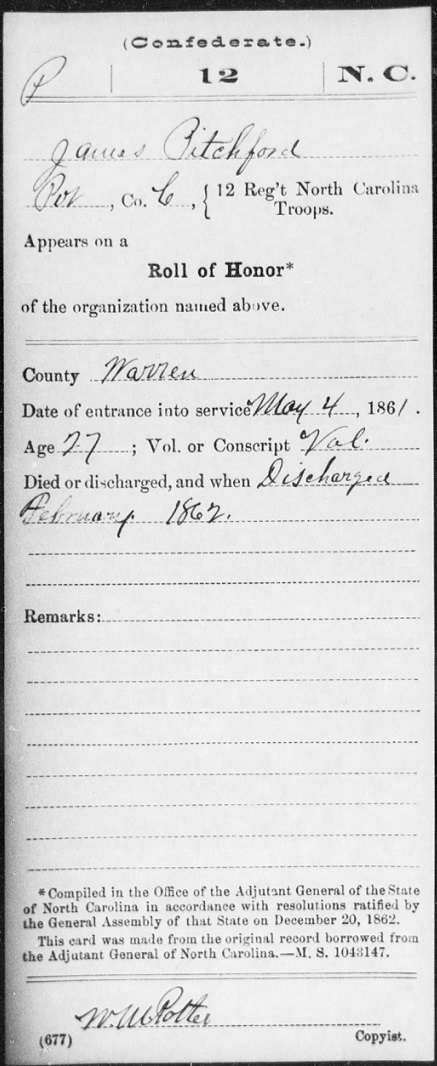 (Confederate.)
P | 12 | N. C.
James Pitchford
Pvt, Co. C, { 12 Reg't North Carolina
Troops.
Appears on a
Roll of Honor*
of the organization named above.
County Warren
Date of entrance into service May 4, 1861.
Age 27; Vol. or Conscript Vol.
Died or discharged, and when Discharged
February 1862.
Remarks:
*Compiled in the Office of the Adjutant General of the State
of North Carolina in accordance with resolutions ratified by
the General Assembly of that State on December 20, 1862.
This card was made from the original record borrowed from
the Adjutant General of North Carolina.—M. S. 1043147.
W. M. Potter
(677) Copyist.